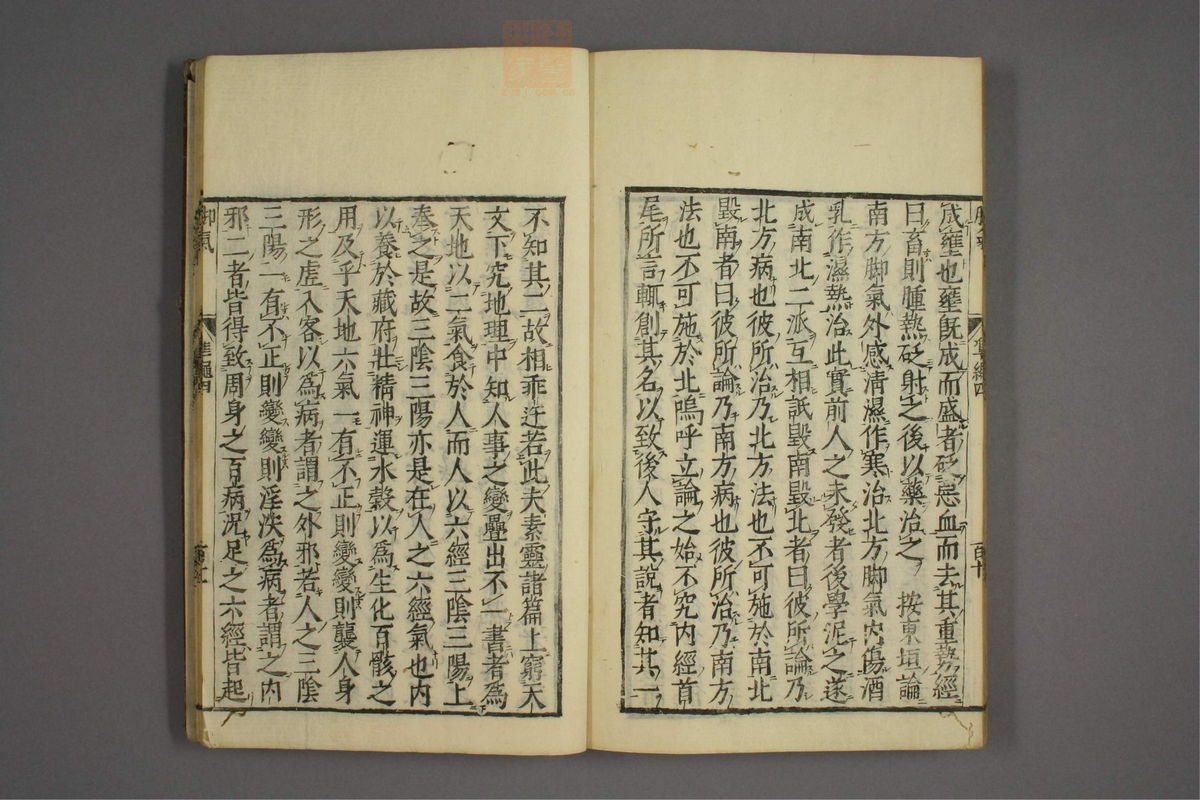 成壅也壅既成而盛者砭惡血而去其重勢經
曰畜則腫熱砭射之後以藥治之　按東垣論
南方脚氣外感清濕作寒治北方脚氣內傷酒
乳作濕熱治此實前人之未發者後學泥之遂
成南北二派互相詆毀南毀北者曰彼所論乃
北方病也彼所治乃北方法也不可施於南北
毀南者曰彼所論乃南方病也彼所治乃南方
法也不可施於北嗚呼立論之始不究內經首
尾所言輒創其名以致後人守其說者知其一
不知其二故相乖迕若此夫素靈諸篇上窮天
文下究地理中知人事之變疊出不一書者爲
天地以二氣食於人而人以六經三陰三陽上
奉之是故三陰三陽亦是在人之六經氣也內
以養於藏府壯精神運水穀以爲生化百骸之
用及乎天地六氣一有不正則變變則襲人身
形之虛入客以爲病者謂之外邪若人之三陰
三陽一有不正則變變則淫泆爲病者謂之內
邪二者皆得致周身之百病況足之六經皆起
脚氣
準繩四